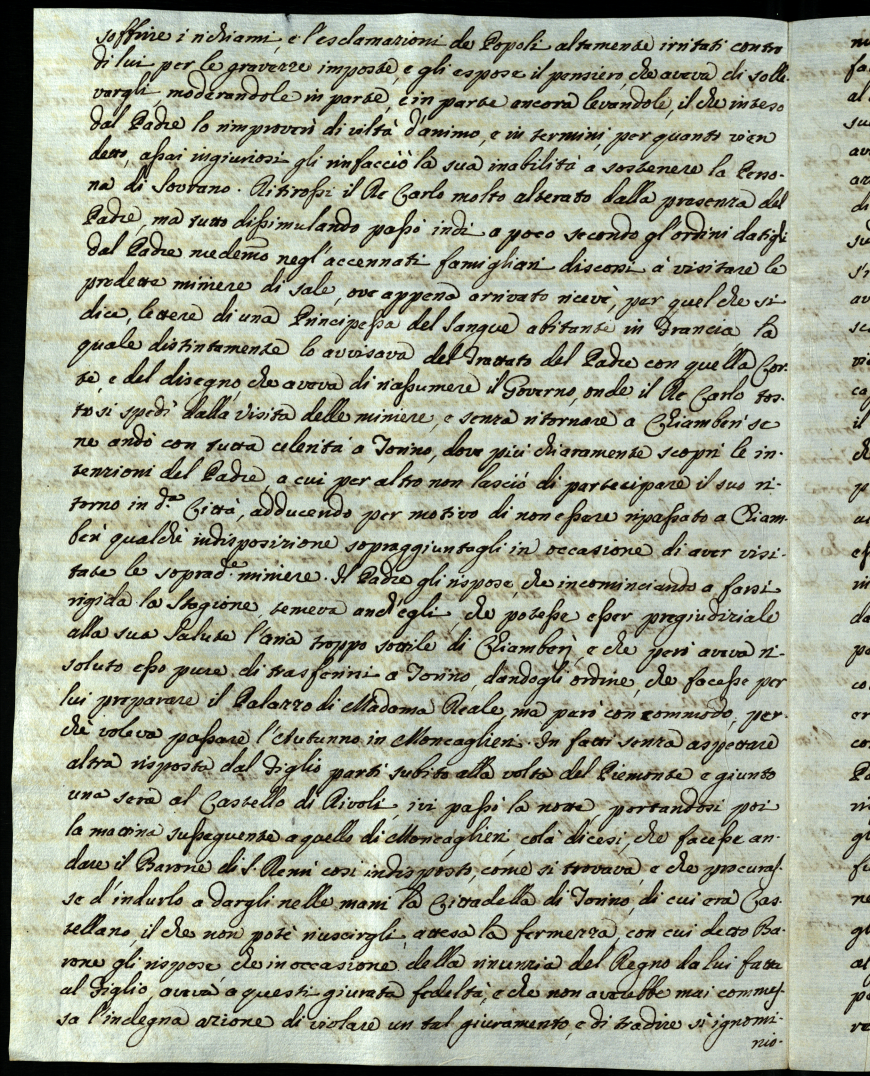 soffrire i richiami, e l'esclamazioni de Popoli altamente irritati contro
di lui per le gravezze imposte, e gli espose il pensiero, che aveva di solle-
vargli, moderandole in parte, e in parte ancora levandole, il che inteso
dal Padre lo rimproverò di viltà d'animo, e in termini, per quanto vien
detto, assai ingiuriosi gli rinfacciò la sua inabilità a sostenere la Perso-
na di Sovrano. Ritirossi il Re Carlo molto alterato dalla presenza del
Padre, ma tutto dissimulando passò indi a poco secondo gl'ordini datigli
dal Padre medemo negl'accennati famigliari discorsi à visitare le
predette miniere di sale, ove appena arrivato ricevè, per quel che si
dice, lettere di una Principessa del Sangue abitante in Francia, la
quale distintamente lo avvisava del Trattato del Padre con quella Cor-
te, e del disegno che aveva di riassumere il Governo, onde il Re Carlo tos-
to si spedì dalla visita delle miniere, e senza ritornare a Chiamberì se
ne andò con tutta celerità a Torino, dove più chiaramente scoprì le in-
tenzioni del Padre, a cui per altro non lasciò di partecipare il suo ri-
torno in d.ª Città, adducendo per motivo di non essere ripassato a Chiam-
berì qualche indisposizione sopraggiuntagli in occasione di aver visi-
tate le soprad.e miniere. Il Padre gli rispose, che incominciando a farsi
rigida la Stagione temeva anch'egli, che potesse esser pregiudiziale
alla sua Salute l'aria troppo sottile di Chiamberì, e che però aveva ri-
soluto esso pure di trasferirsi a Torino, dandogli ordine, che facesse per
lui preparare il Palazzo di Madama Reale, ma però con commodo, per-
chè voleva passare l'Autunno in Moncaglieri. In fatti senza aspettare
altra risposta dal Figlio partì subito alla volta del Piemonte, e giunto
una sera al Castello di Rivoli, ivi passò la notte, portandosi poi
la mattina susseguente a quello di Moncaglieri, colà dicesi, che facesse an-
dare il Barone di S. Remi così indisposto, come si trovava, e che procuras-
se d'indurlo a dargli nelle mani la Cittadella di Torino, di cui era Cas-
tellano, il che non potè riuscirgli, attesa la fermezza, con cui detto Ba-
rone gli rispose che in occasione della rinunzia del Regno da lui fatta
al Figlio, aveva a questi giurata fedeltà, e che non averebbe mai commes-
sa l'indegna azione di violare un tal giuramento, e di tradire sì ignomi-
nio-